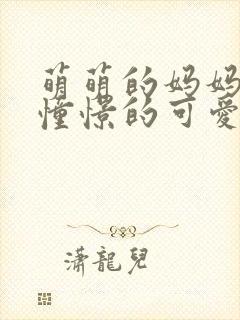 萌萌的妈妈
憧憬的可爱
潇龍兒